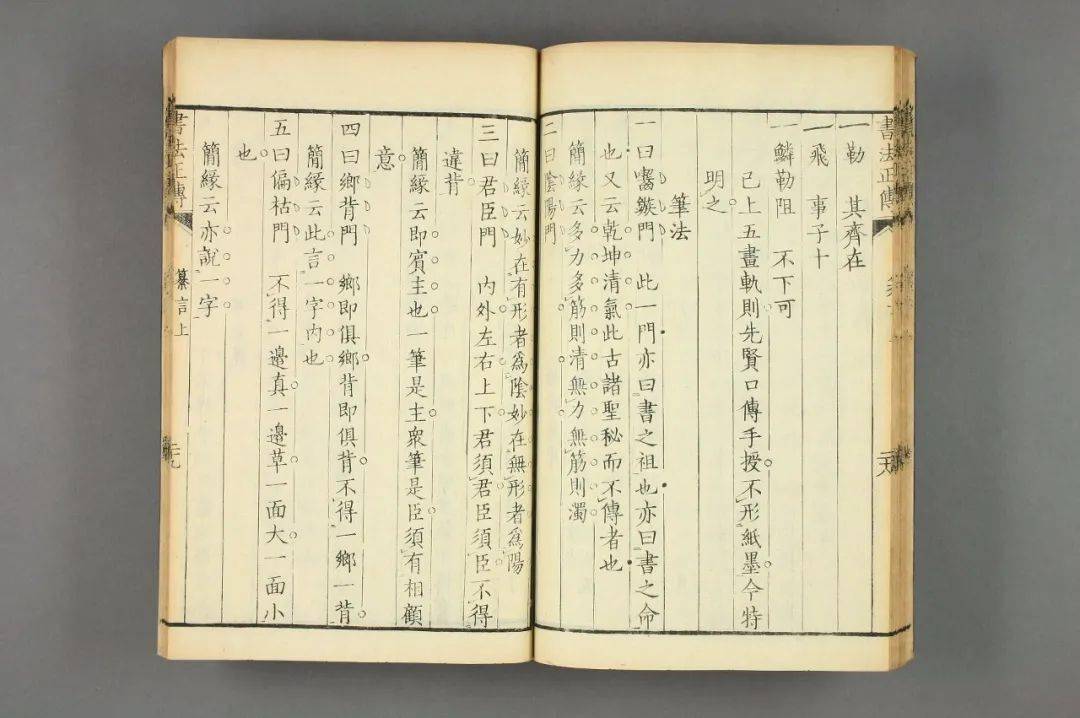 書法正傳
一勒　其齊在
一飛　事子十
一鱗勒阻　不下可
已上五畫軌則先賢口傳手授不形紙墨今特
明之
筆法
一曰篆鏃門　此一門亦曰書之祖也亦曰書之命
也又云乾坤清氣此古諸聖秘而不傳者也
簡緣云多力多筋則清無力無筋則濁
二曰陰陽門
簡緣云妙在有形者爲陰妙在無形者爲陽
三曰君臣門　內外左右上下君須君臣須臣不得
違背
簡緣云即賓主也一筆是主衆筆是臣須有相顧
意
四曰鄉背門　鄉即俱鄉背即俱背不得一鄉一背
簡緣云此言一字內也
五曰偏枯門　不得一邊真一邊草一面大一面小
也
簡緣云亦說一字
書法正傳
纂言上